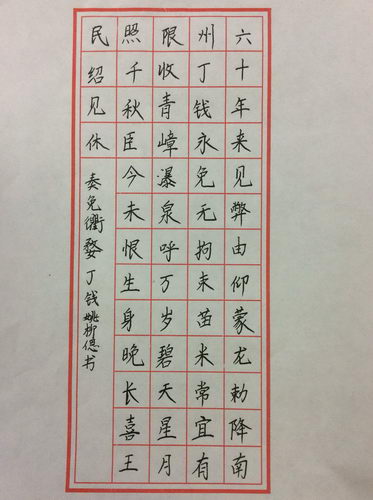 六十年来见弊由仰蒙龙勅降南
州丁钱永免无拘束苗米常宜有
限收青嶂瀑泉呼万岁碧天星月
照千秋臣今未恨生身晚长喜王
民绍见休
奏免衢婺丁钱 姚柳偲书